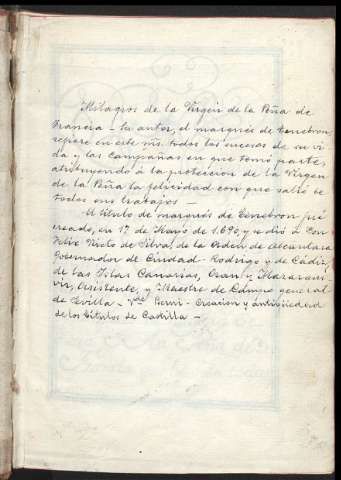 Milagros de la Virgen de la Peña de
Francia - Su autor, el marqués de Tenebron,
refiere en este ms. todos los sucesos de su vi-
da y las campañas en que tomó parte,
atribuyendo á la proteccion de la Virgen
de la Peña la felicidad con que salió de
todos sus trabajos -
El titulo de marqués de Tenebron fué
creado, en 17 de Mayo de 1690, y se dió a Don
Felix Nieto de Silva, de la Orden de Alcantara
Gobernador de Ciudad-Rodrigo y de Cádiz,
de las Islas Canarias, Oran y Mazarqui-
vir, Asistente, y Maestre de Campo general
de Sevilla - Vde Berni - Creacion y antigüedad
de los titulos de Castilla -